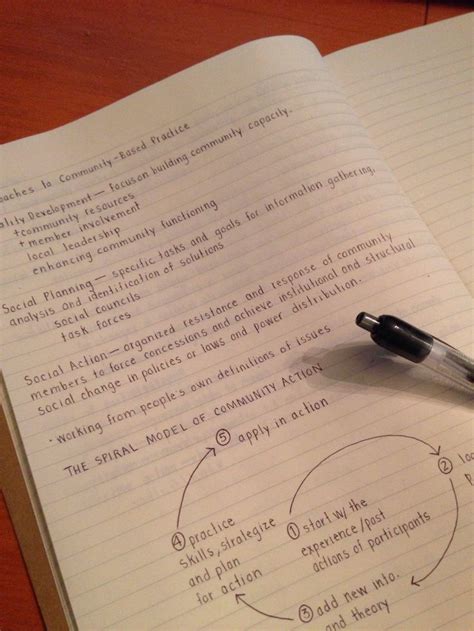 oaches to Community-Based Practice
ality Development — focus on building community capacity.
+community resources
+ member involvement
local leadership
enhancing community functioning
Social Planning — specific tasks and goals for information gathering,
analysis and identification of solutions
social councils
task forces
Social Action — organized resistance and response of community
members to force concessions and achieve institutional and structural
social change in policies or laws and power distribution.
• working from people's own definitions of issues
THE SPIRAL MODEL OF COMMUNITY ACTION
⑤ apply in action
② loo
① start w/ the
experience/past
actions of participants
④ practice
skills, strategize
and plan
for action
③ add new info.
and theory